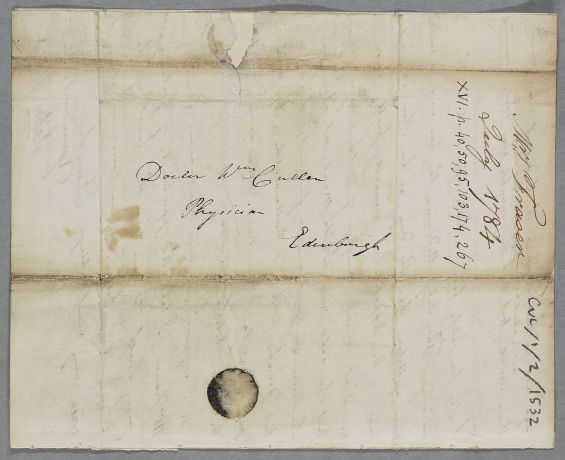 Doctor Wm Cullen
Physician
Edinburgh
July 1784
XVI. p. 40, 50, 95, 103, 174, 267
CUL/1/2/1532